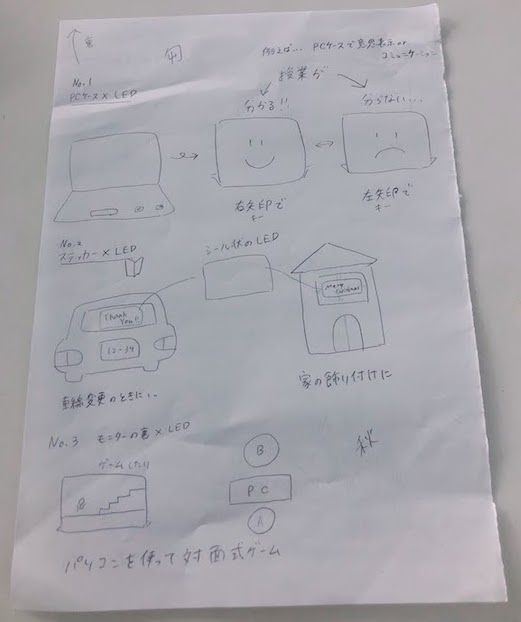 例えば... PCケースで意思表示or
コミュニケーション
No.1
PCケース × LED
授業が
分かる!!
分からない...
右矢印で
キー
左矢印で
キー
No.2
ステッカー × LED
シール状のLED
Thank
You!!
12-34
Merry
Christmas
車線変更のときに..
家の飾り付けに
No.3 モニターの裏 × LED
ゲームしたり
B
PC
A
パソコンを使って対面式ゲーム